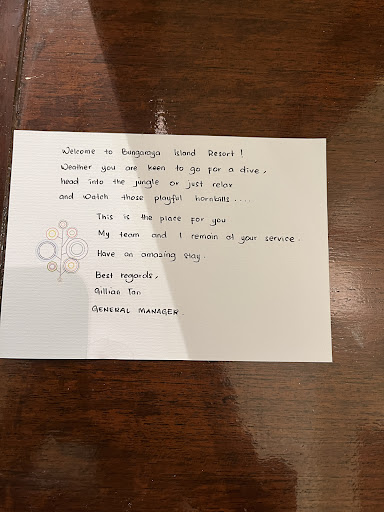 Welcome to Bungaraya island Resort !
Weather you are keen to go for a dive,
head into the jungle or just relax
and watch those playful hornbills ....
This is the place for you
My team and I remain at your service.
Have an amazing stay.
Best regards,
Gillian Tan
GENERAL MANAGER.